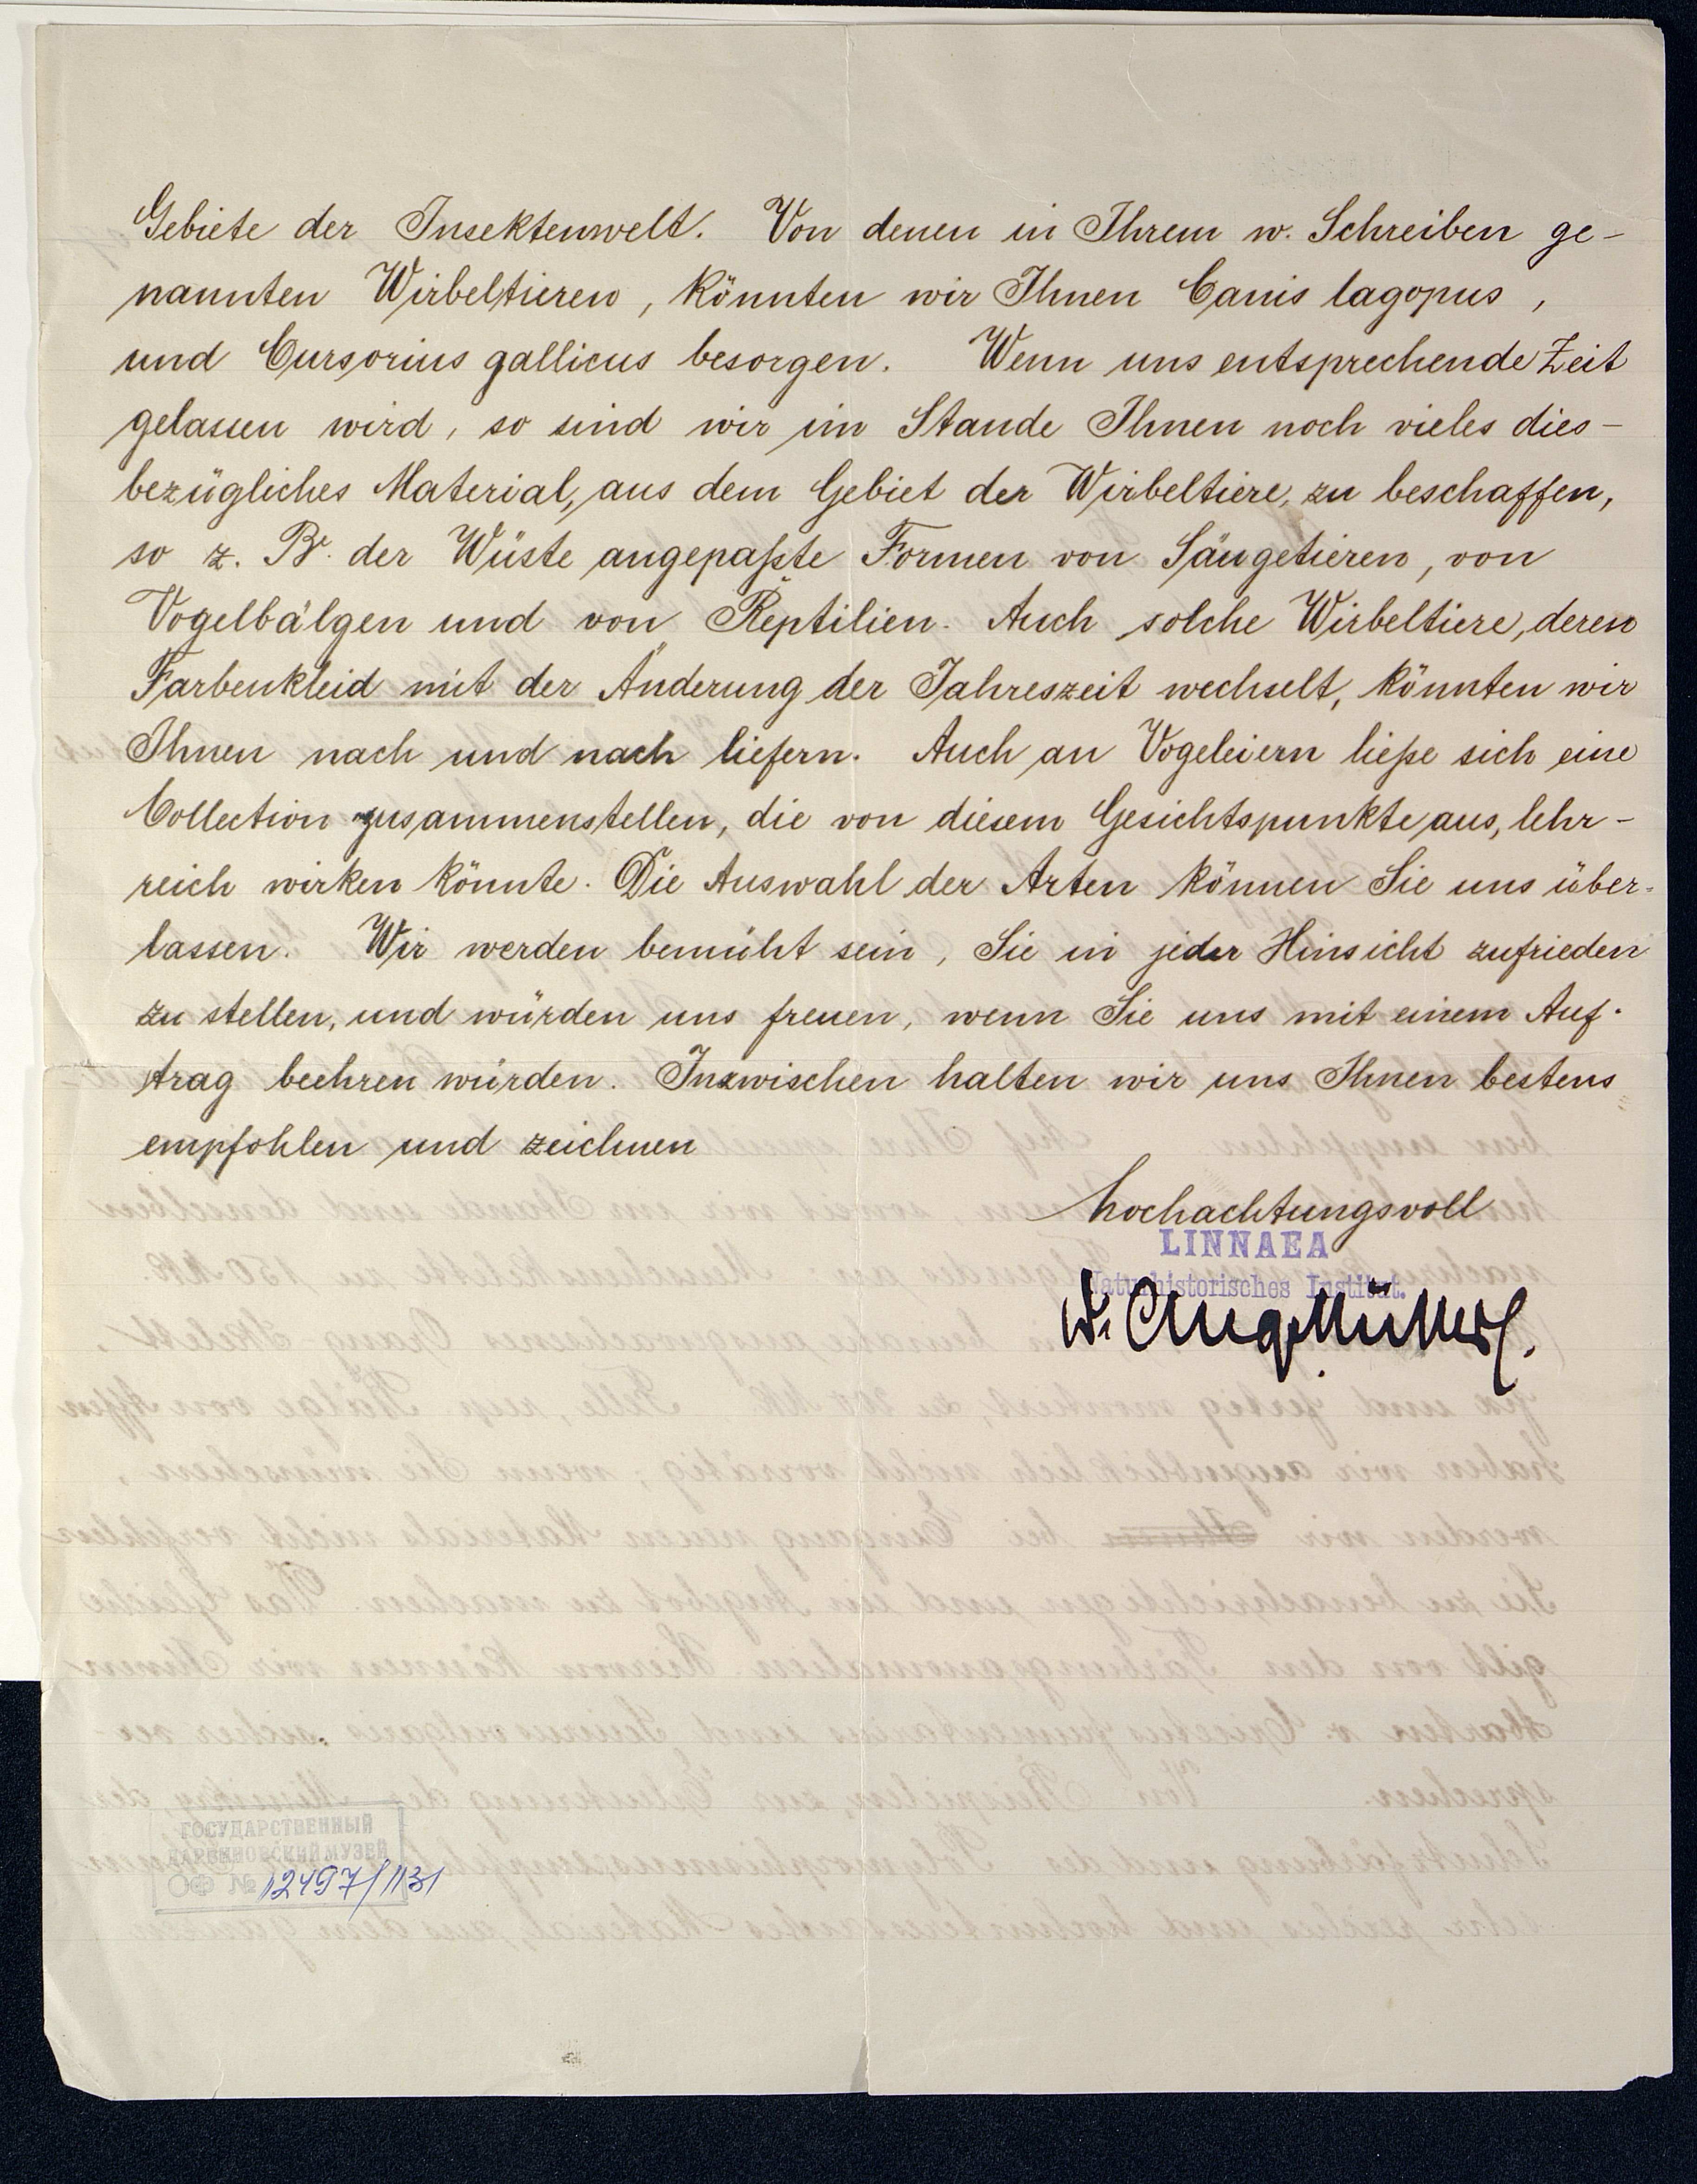 Gebiete der Insektenwelt. Von denen in Ihrem w. Schreiben ge-
nannten Wirbeltieren, könnten wir Ihnen Canis lagopus,
und Cursorius gallicus besorgen. Wenn uns entsprechende Zeit
gelassen wird, so sind wir im Stande Ihnen noch vieles dies-
bezügliches Material, aus dem Gebiet der Wirbeltiere, zu beschaffen,
so z. B. der Wüste angepaßte Formen von Säugetieren, von
Vogelbälgen und von Reptilien. Auch solche Wirbeltiere, deren
Farbenkleid mit der Änderung der Jahreszeit wechselt, könnten wir
Ihnen nach und nach liefern. Auch an Vogeleiern ließe sich eine
Collection zusammenstellen, die von diesem Gesichtspunkte aus, lehr-
reich wirken könnte. Die Auswahl der Arten können Sie uns über-
lassen. Wir werden bemüht sein, Sie in jeder Hinsicht zufrieden
zu stellen, und würden uns freuen, wenn Sie uns mit einem Auf-
trag beehren würden. Inzwischen halten wir uns Ihnen bestens
empfohlen und zeichnen
hochachtungsvoll
LINNAEA
Naturhistorisches Institut.
Dr. Aug. Müller.
ГОСУДАРСТВЕННЫЙ
ДАРВИНОВСКИЙ МУЗЕЙ
ОФ № 12497/1131